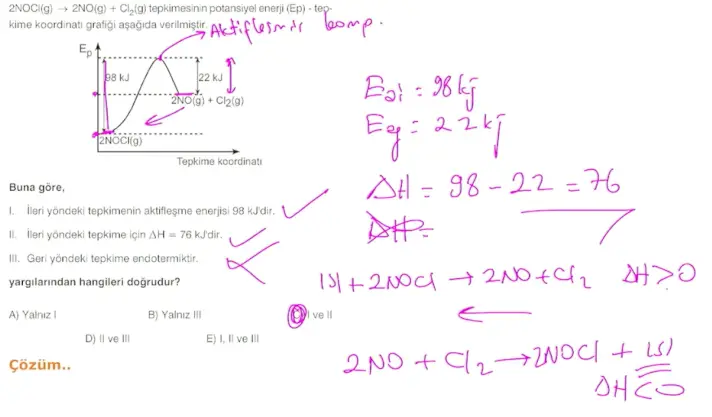 2NOCl(g) → 2NO(g) + Cl₂(g) tepkimesinin potansiyel enerji (Ep) - tep-
kime koordinatı grafiği aşağıda verilmiştir.
Aktifleşmiş komp.
Eₚ
98 kJ
22 kJ
2NO(g) + Cl₂(g)
2NOCl(g)
Tepkime koordinatı
Eai = 98 kj
Eag = 22 kj
ΔH = 98 - 22 = 76
ΔH =
Buna göre,
I. İleri yöndeki tepkimenin aktifleşme enerjisi 98 kJ'dir.
II. İleri yöndeki tepkime için ΔH = 76 kJ'dir.
III. Geri yöndeki tepkime endotermiktir.
yargılarından hangileri doğrudur?
ISI + 2NOCl → 2NO + Cl₂ ΔH > 0
A) Yalnız I B) Yalnız III C) I ve II
D) II ve III E) I, II ve III
2NO + Cl₂ → 2NOCl + ISI
ΔH < 0
Çözüm..